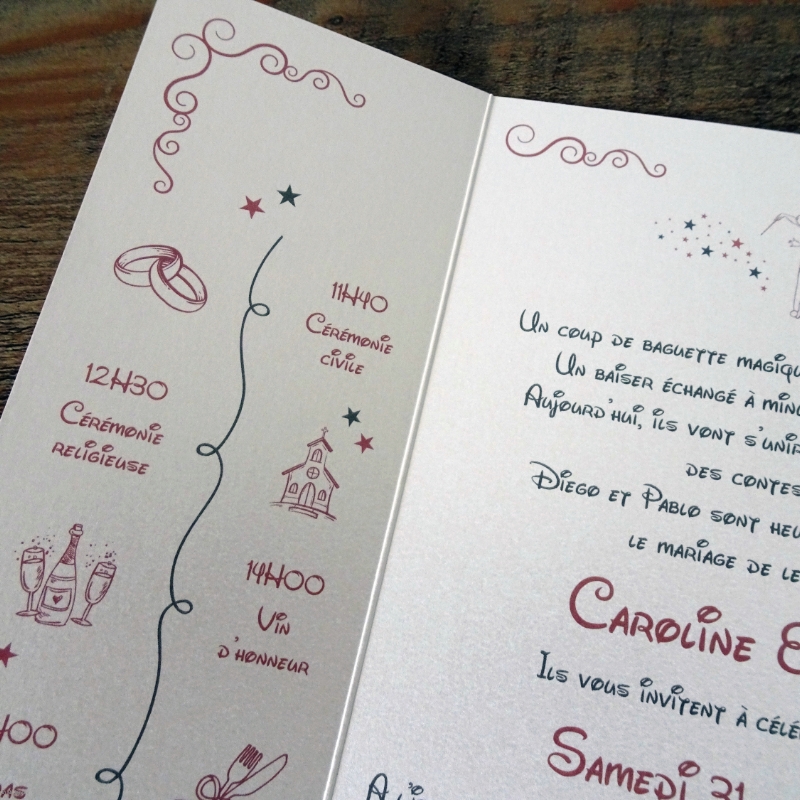 11H40
Cérémonie
civile
12H30
Cérémonie
religieuse
14H00
Vin
d'honneur
Un coup de baguette
Un baiser échangé à
Aujourd'hui, ils vont
des
Diego et Pablo sont
le mariage de
Caroline
Ils vous invitent à
Samedi 21